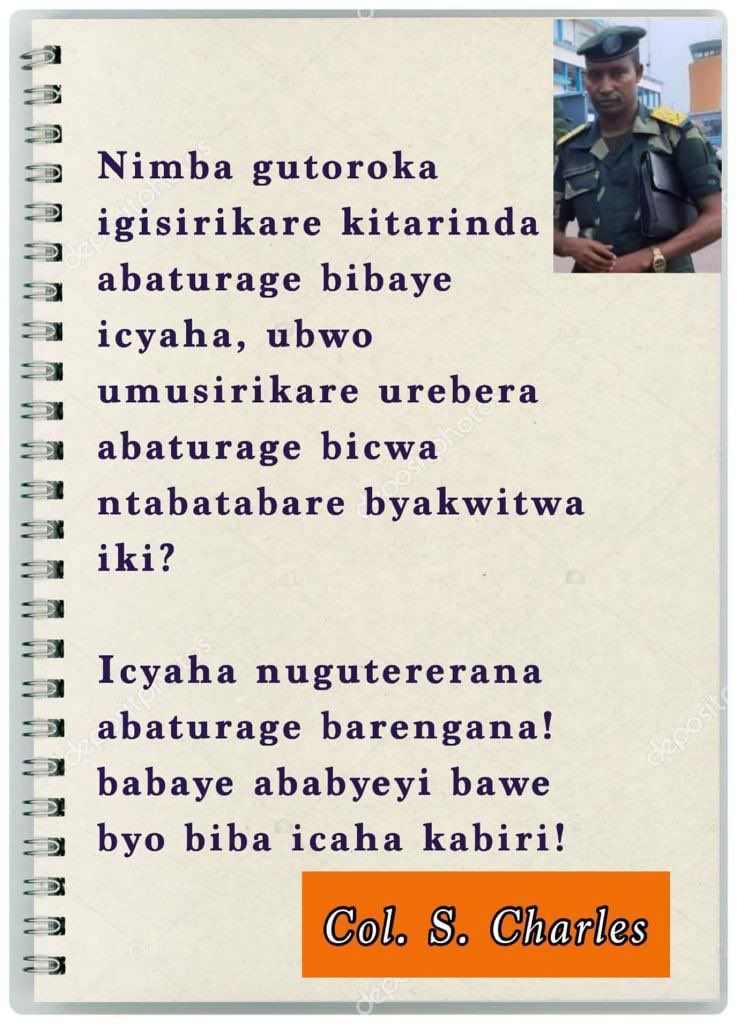 Nimba gutoroka
igisirikare kitarinda
abaturage bibaye
icyaha, ubwo
umusirikare urebera
abaturage bicwa
ntabatabare byakwitwa
iki?
Icyaha nugutererana
abaturage barengana!
babaye ababyeyi bawe
byo biba icaha kabiri!
Col. S. Charles